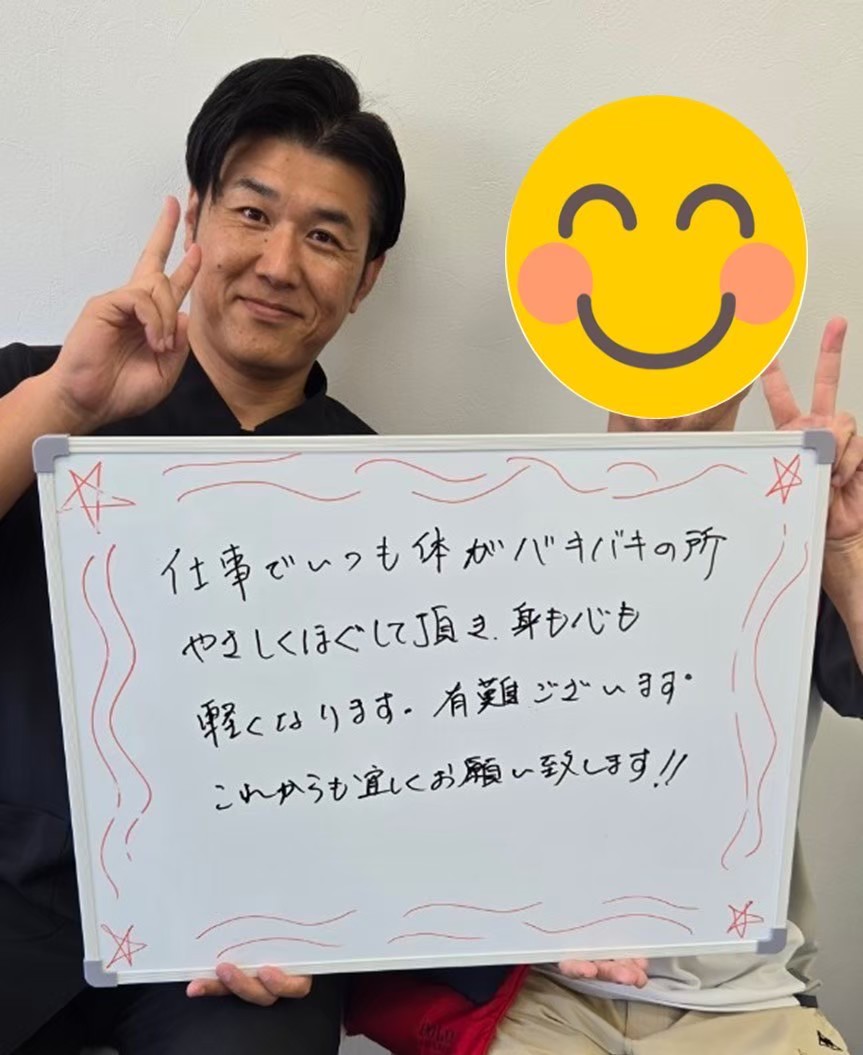 仕事でいつも体がバキバキの所
やさしくほぐして頂き、身も心も
軽くなります。有難うございます。
これからも宜しくお願い致します!!